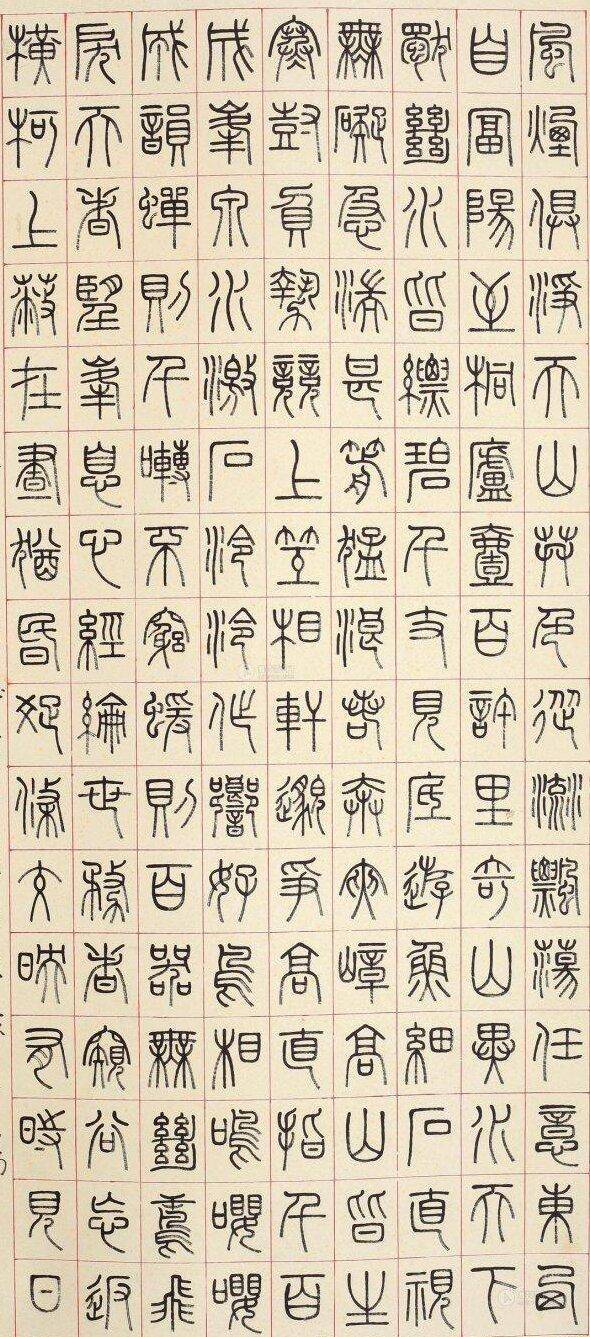 風煙俱淨天山共色從流飄蕩任意東西
自富陽至桐廬壹百許里奇山異水天下
獨絕水皆縹碧千丈見底遊魚細石直視
無礙急湍甚箭猛浪若奔夾嶂高山皆生
寒樹負勢競上互相軒邈爭高直指千百
成峯泉水激石泠泠作響好鳥相鳴嚶嚶
成韻蟬則千囀不窮蝯則百嘂無絕鳶飛
戾天者望峯息心經綸世務者窺谷忘返
橫柯上蔽在晝猶昏疏條交映有時見日